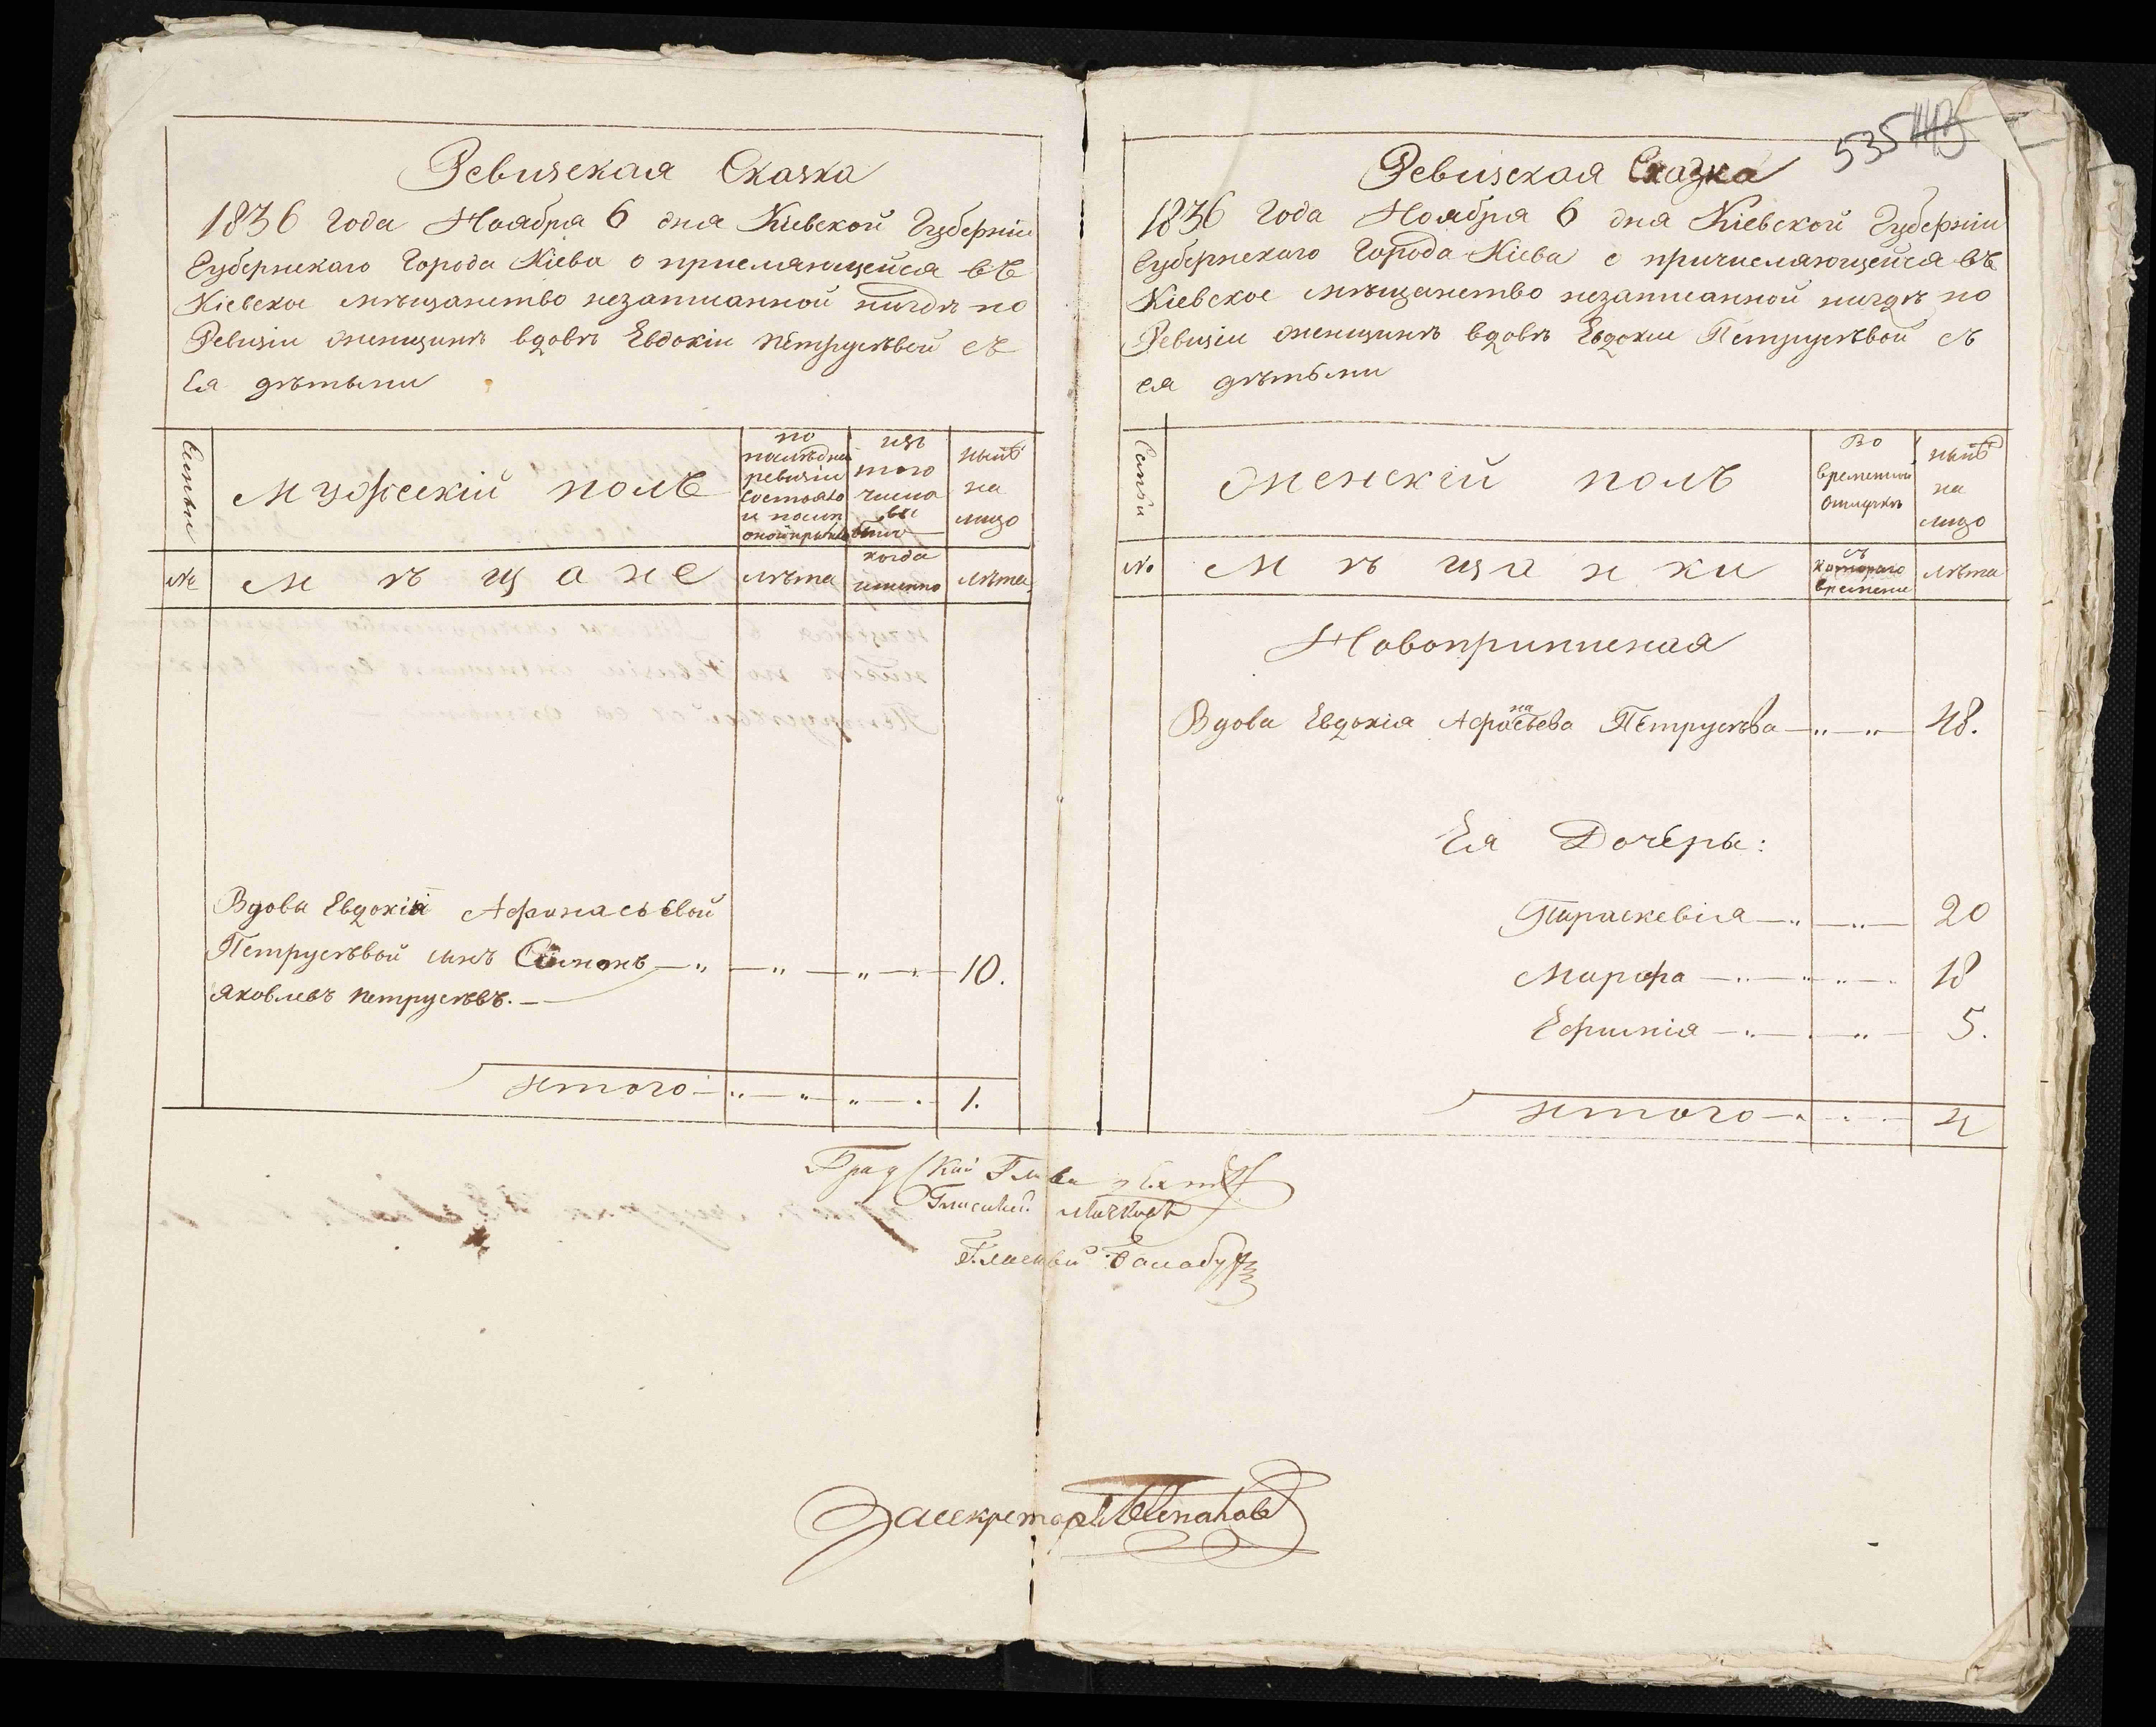 Ревизская Сказка
1836 года Ноября 6 дня Кіевской Губерніи
Губернскаго Города Кіева о причисляющейся въ
Кіевское мѣщанство незаписанной нигдѣ по
Ревизіи женщинѣ вдовѣ Евдокіи Петрусѣвой съ
Ея дѣтьми
Семьи
Мужескій полъ
по последней ревизіи состояло и после оной прибыло
изъ того числа выбыло
нынѣ на лицо
№
Мѣщане
лѣта
когда именно
лѣта
Вдовы Евдокіи Афанасьевой
Петрусѣвой сынъ Симонъ 10.
Яковлевъ Петрусѣвъ.
Итого 1.
535
Ревизская Сказка
1836 года Ноября 6 дня Кіевской Губерніи
Губернскаго Города Кіева о причисляющейся въ
Кіевское мѣщанство незаписанной нигдѣ по
Ревизіи женщинѣ вдовѣ Евдокіи Петрусѣвой съ
ея дѣтьми
Семьи
Женскій полъ
Во временной отлучкѣ
нынѣ на лицо
№
Мѣщанки
съ котораго времени
лѣта
Новоприписная
Вдова Евдокія Афанасьева Петрусѣва 48.
Ея Дочери:
Параскевіа 20
Марфа 18
Ефимія 5.
Итого 4
Градскій Глава
Гласный
Гласный Балабуха
За секретаря Степановъ